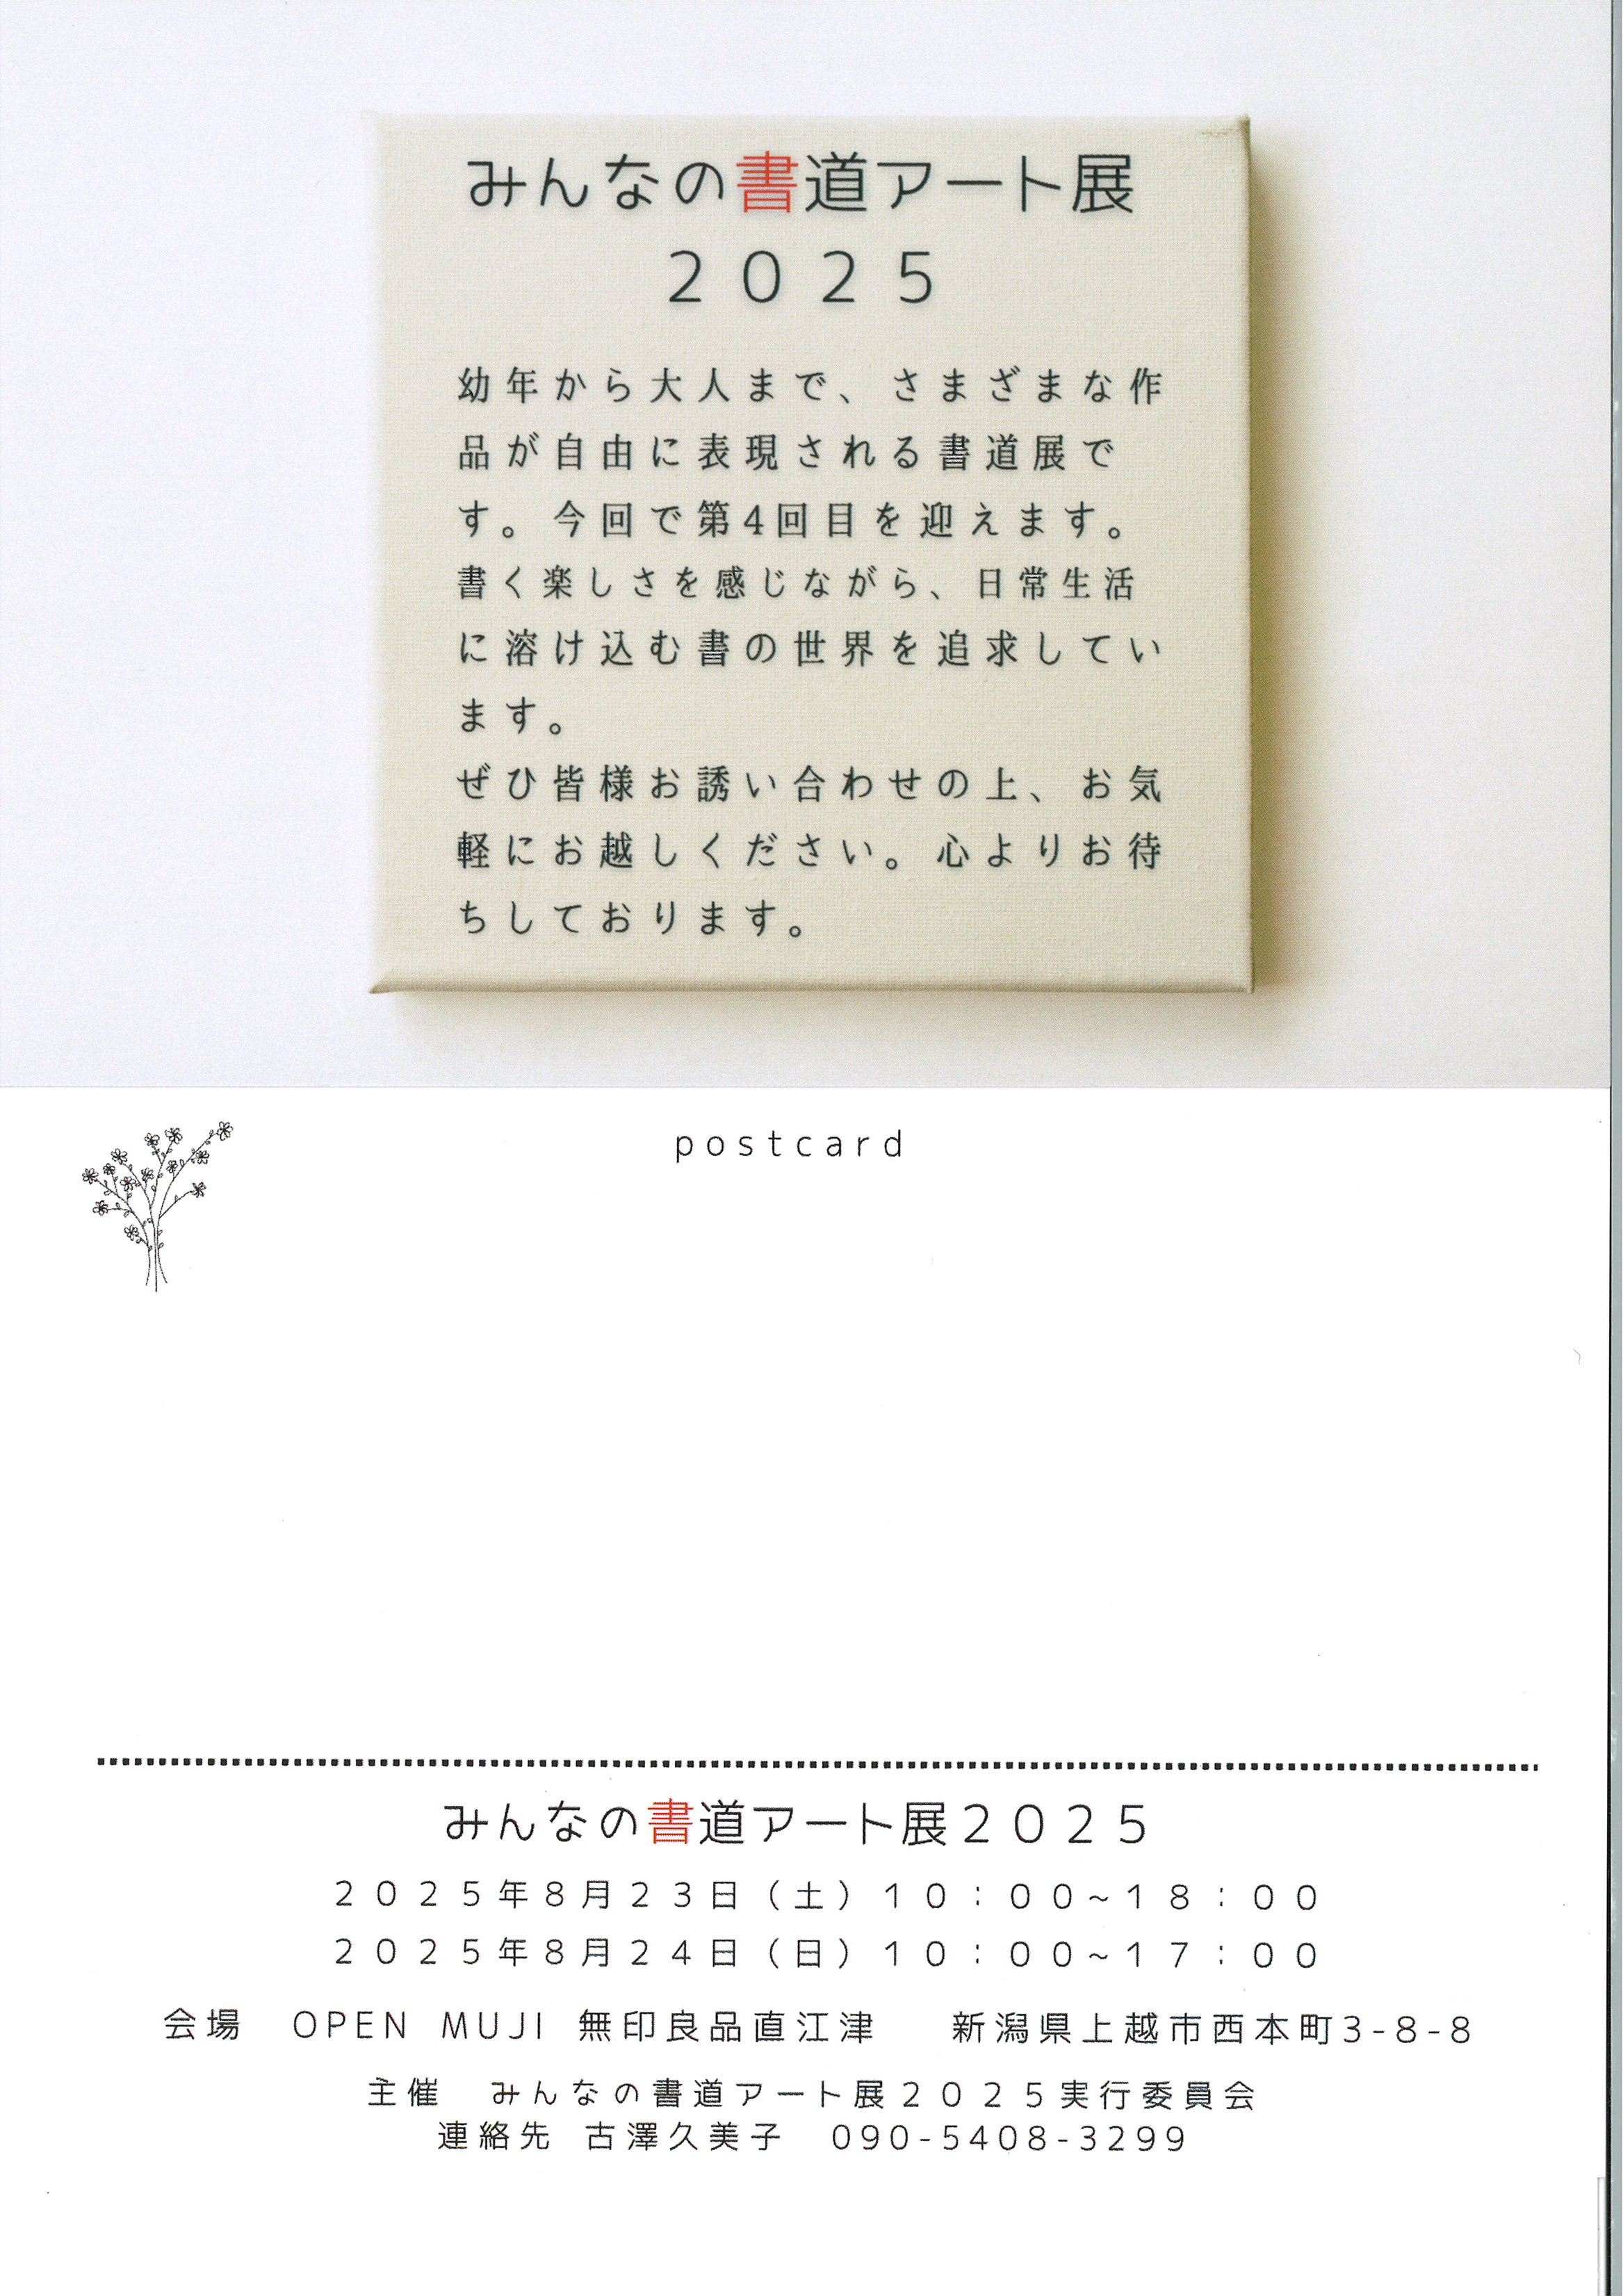 みんなの書道アート展
２０２５
幼年から大人まで、さまざまな作
品が自由に表現される書道展で
す。今回で第4回目を迎えます。
書く楽しさを感じながら、日常生活
に溶け込む書の世界を追求してい
ます。
ぜひ皆様お誘い合わせの上、お気
軽にお越しください。心よりお待
ちしております。
postcard
みんなの書道アート展２０２５
２０２５年８月２３日（土）１０：００~１８：００
２０２５年８月２４日（日）１０：００~１７：００
会場　OPEN MUJI 無印良品直江津　新潟県上越市西本町3-8-8
主催　みんなの書道アート展２０２５実行委員会
連絡先 古澤久美子　090-5408-3299